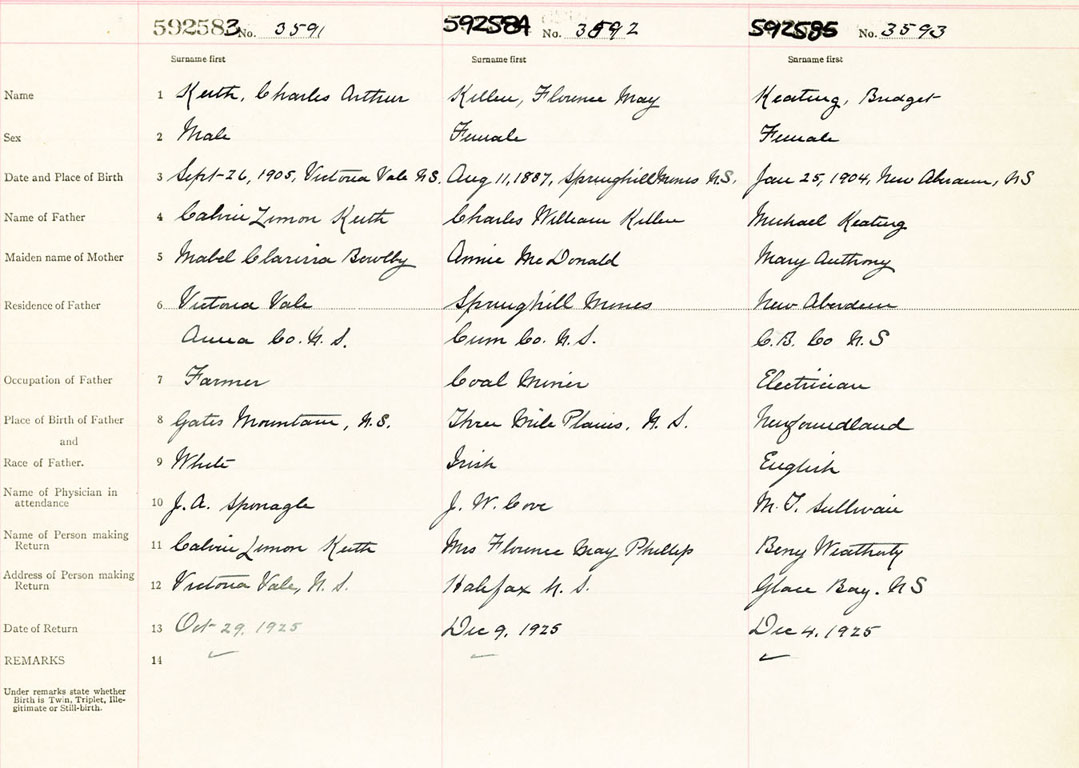 592583 No. 3591 592584 No. 3592 592585 No. 3593
Surname first Surname first Surname first
Name 1 Keith, Charles Arthur Killen, Florence May Keating, Bridget
Sex 2 Male Female Female
Date and Place of Birth 3 Sept-26, 1905, Victoria Vale N.S. Aug 11, 1887, Springhill Mines N.S. Jan 25, 1904, New Aberdeen, NS
Name of Father 4 Calvin Limon Keith Charles William Killen Michael Keating
Maiden name of Mother 5 Mabel Clarissa Bowlby Annie McDonald Mary Anthony
Residence of Father 6 Victoria Vale Springhill Mines New Aberdeen
Anna Co. N.S. Cum Co. N.S. C.B. Co N.S
Occupation of Father 7 Farmer Coal Miner Electrician
Place of Birth of Father 8 Gates Mountain, N.S. Three Mile Plains, N.S. Newfoundland
and
Race of Father. 9 White Irish English
Name of Physician in
attendance 10 J.A. Sponagle J.W. Cove M.T. Sullivan
Name of Person making
Return 11 Calvin Limon Keith Mrs Florence May Phillip
Address of Person making
Return 12 Victoria Vale, N.S. Halifax N.S. Glace Bay. NS
Date of Return 13 Oct 29, 1925 Dec 9, 1925 Dec 4, 1925
REMARKS 14
Under remarks state whether
Birth is Twin, Triplet, Ille-
gitimate or Still-birth.